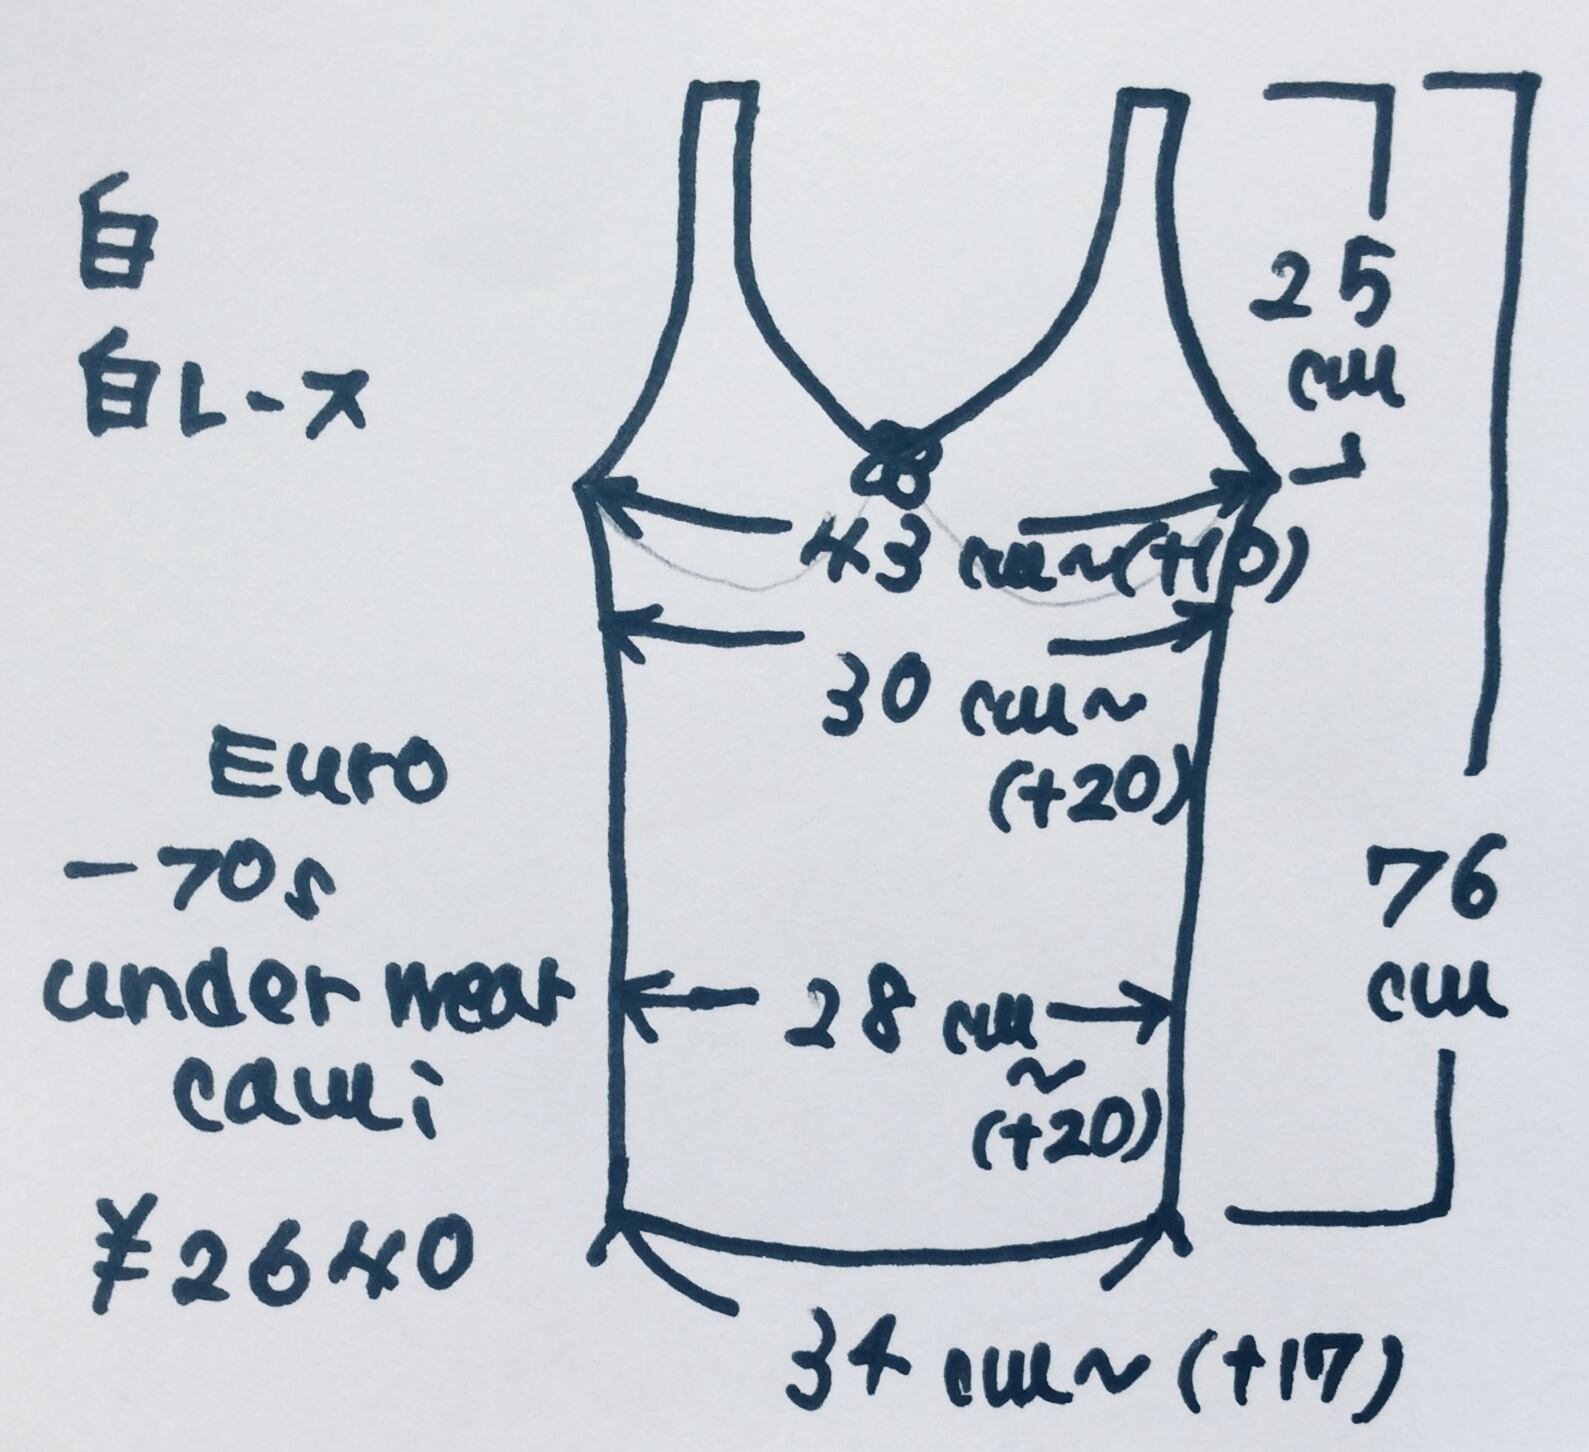 白
白レース
25
cm
43 cm~(+10)
30 cm~
(+20)
Euro
-70s
76
cm
under wear
cami
28 cm
~
(+20)
¥2640
34 cm~(+17)